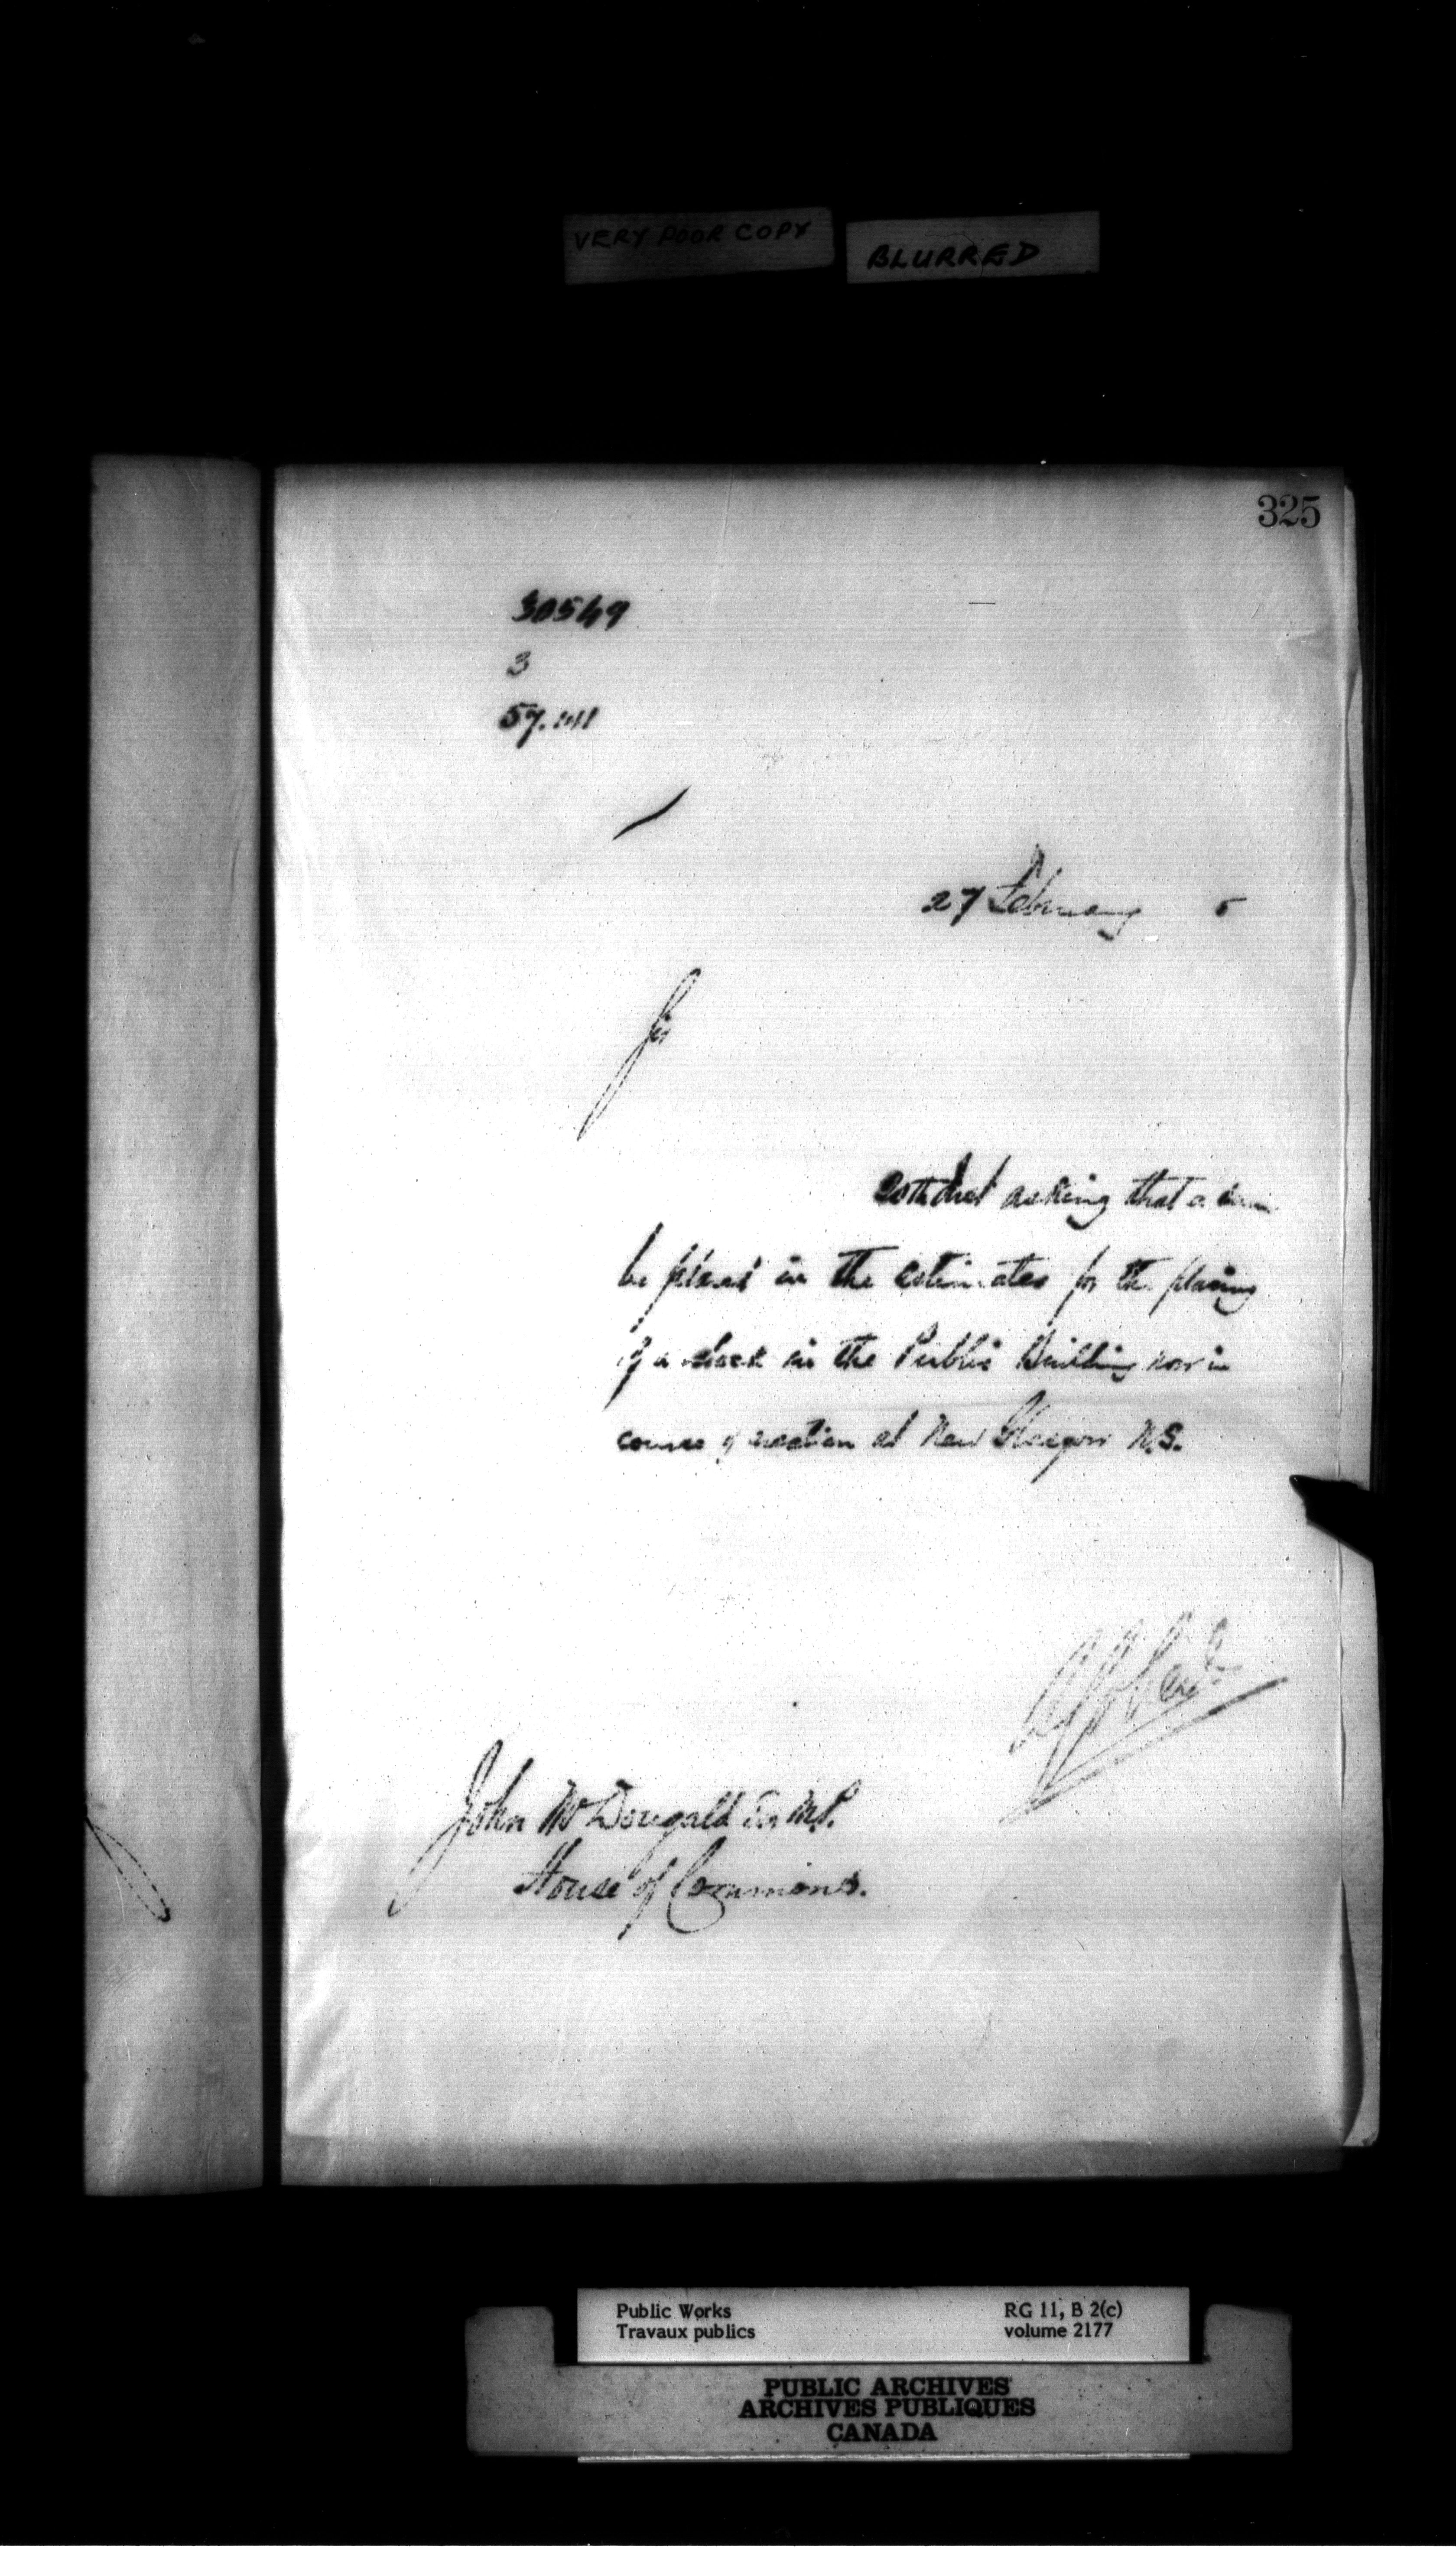 VERY POOR COPY
BLURRED
325
30549
3
57.111
27 February 5
Sir
20th Inst asking that a sum
be placed in the estimates for the placing
of a clock in the Public Building now in
course of erection at New Glasgow N.S.
John McDougald Esq M.P.
House of Commons.
Public Works
Travaux publics
RG 11, B 2(c)
volume 2177
PUBLIC ARCHIVES
ARCHIVES PUBLIQUES
CANADA